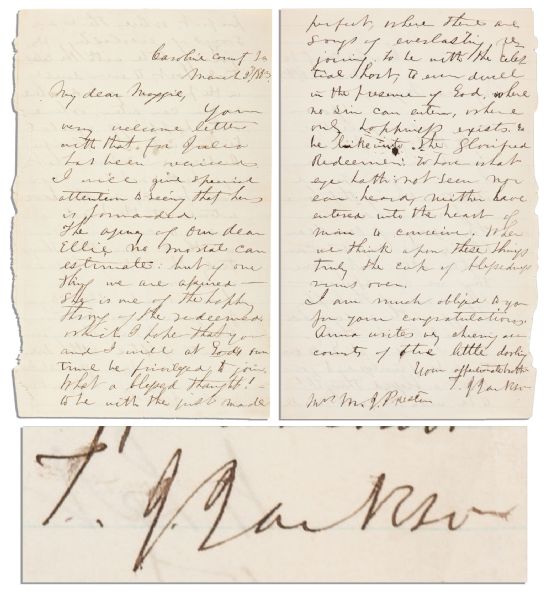 Caroline count Va
March 9th 1863
My dear Maggie,
Your
very welcome letter
with that for Julia
has been received
I will give special
attention to seeing that hers
is forwarded.
The agony of our dear
Ellie no mortal can
estimate: but of one
thing we are assured—
She is one of the happy
throng of the redeemed
which I hope that you
and I will at God's own
time be privileged to join.
What a blessed thought! —
to be with the just made
perfect, where there are
songs of everlasting re-
joicing to be with the celes
tial host, to ever dwell
in the presence of God, where
no sin can enter, where
only happiness exists. to
be like unto the Glorified
Redeemer: to have what
eye hath not seen nor
ear heard, neither have
entered into the heart of
man to conceive. When
we think upon these things
truly the cup of blessedings
runs over.
I am much obliged to you
for your congratulations.
Anna writes me cheering ac
counts of the little darling
Your affectionate brother
T. J. Jackson
Mrs M. J. Preston
T. J. Jackson